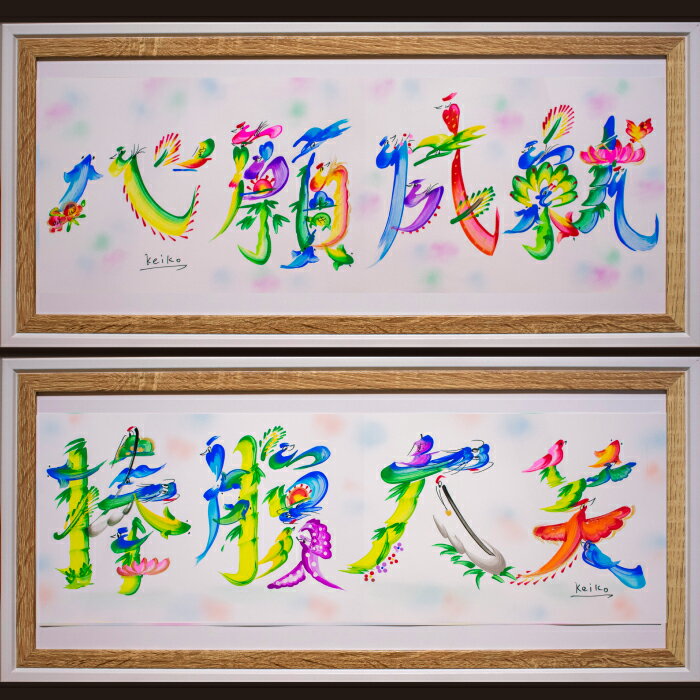 心願成就
Keiko
捧腹大笑
Keiko